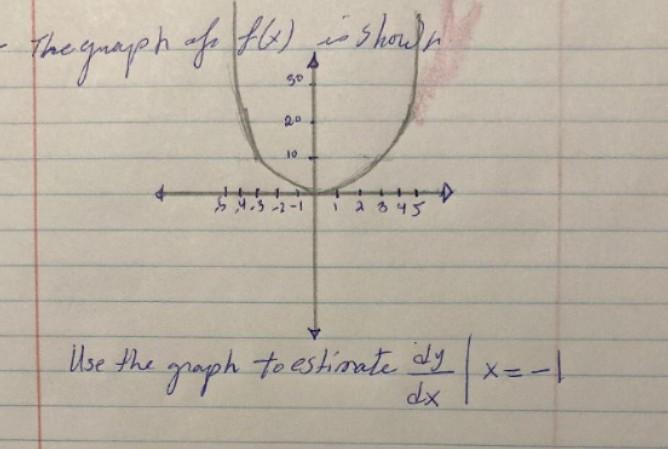 - The graph of f(x) is shown
30
20
10
-5 -4 -3 -2 -1 1 2 3 4 5
Use the graph to estimate dy/dx | x = -1